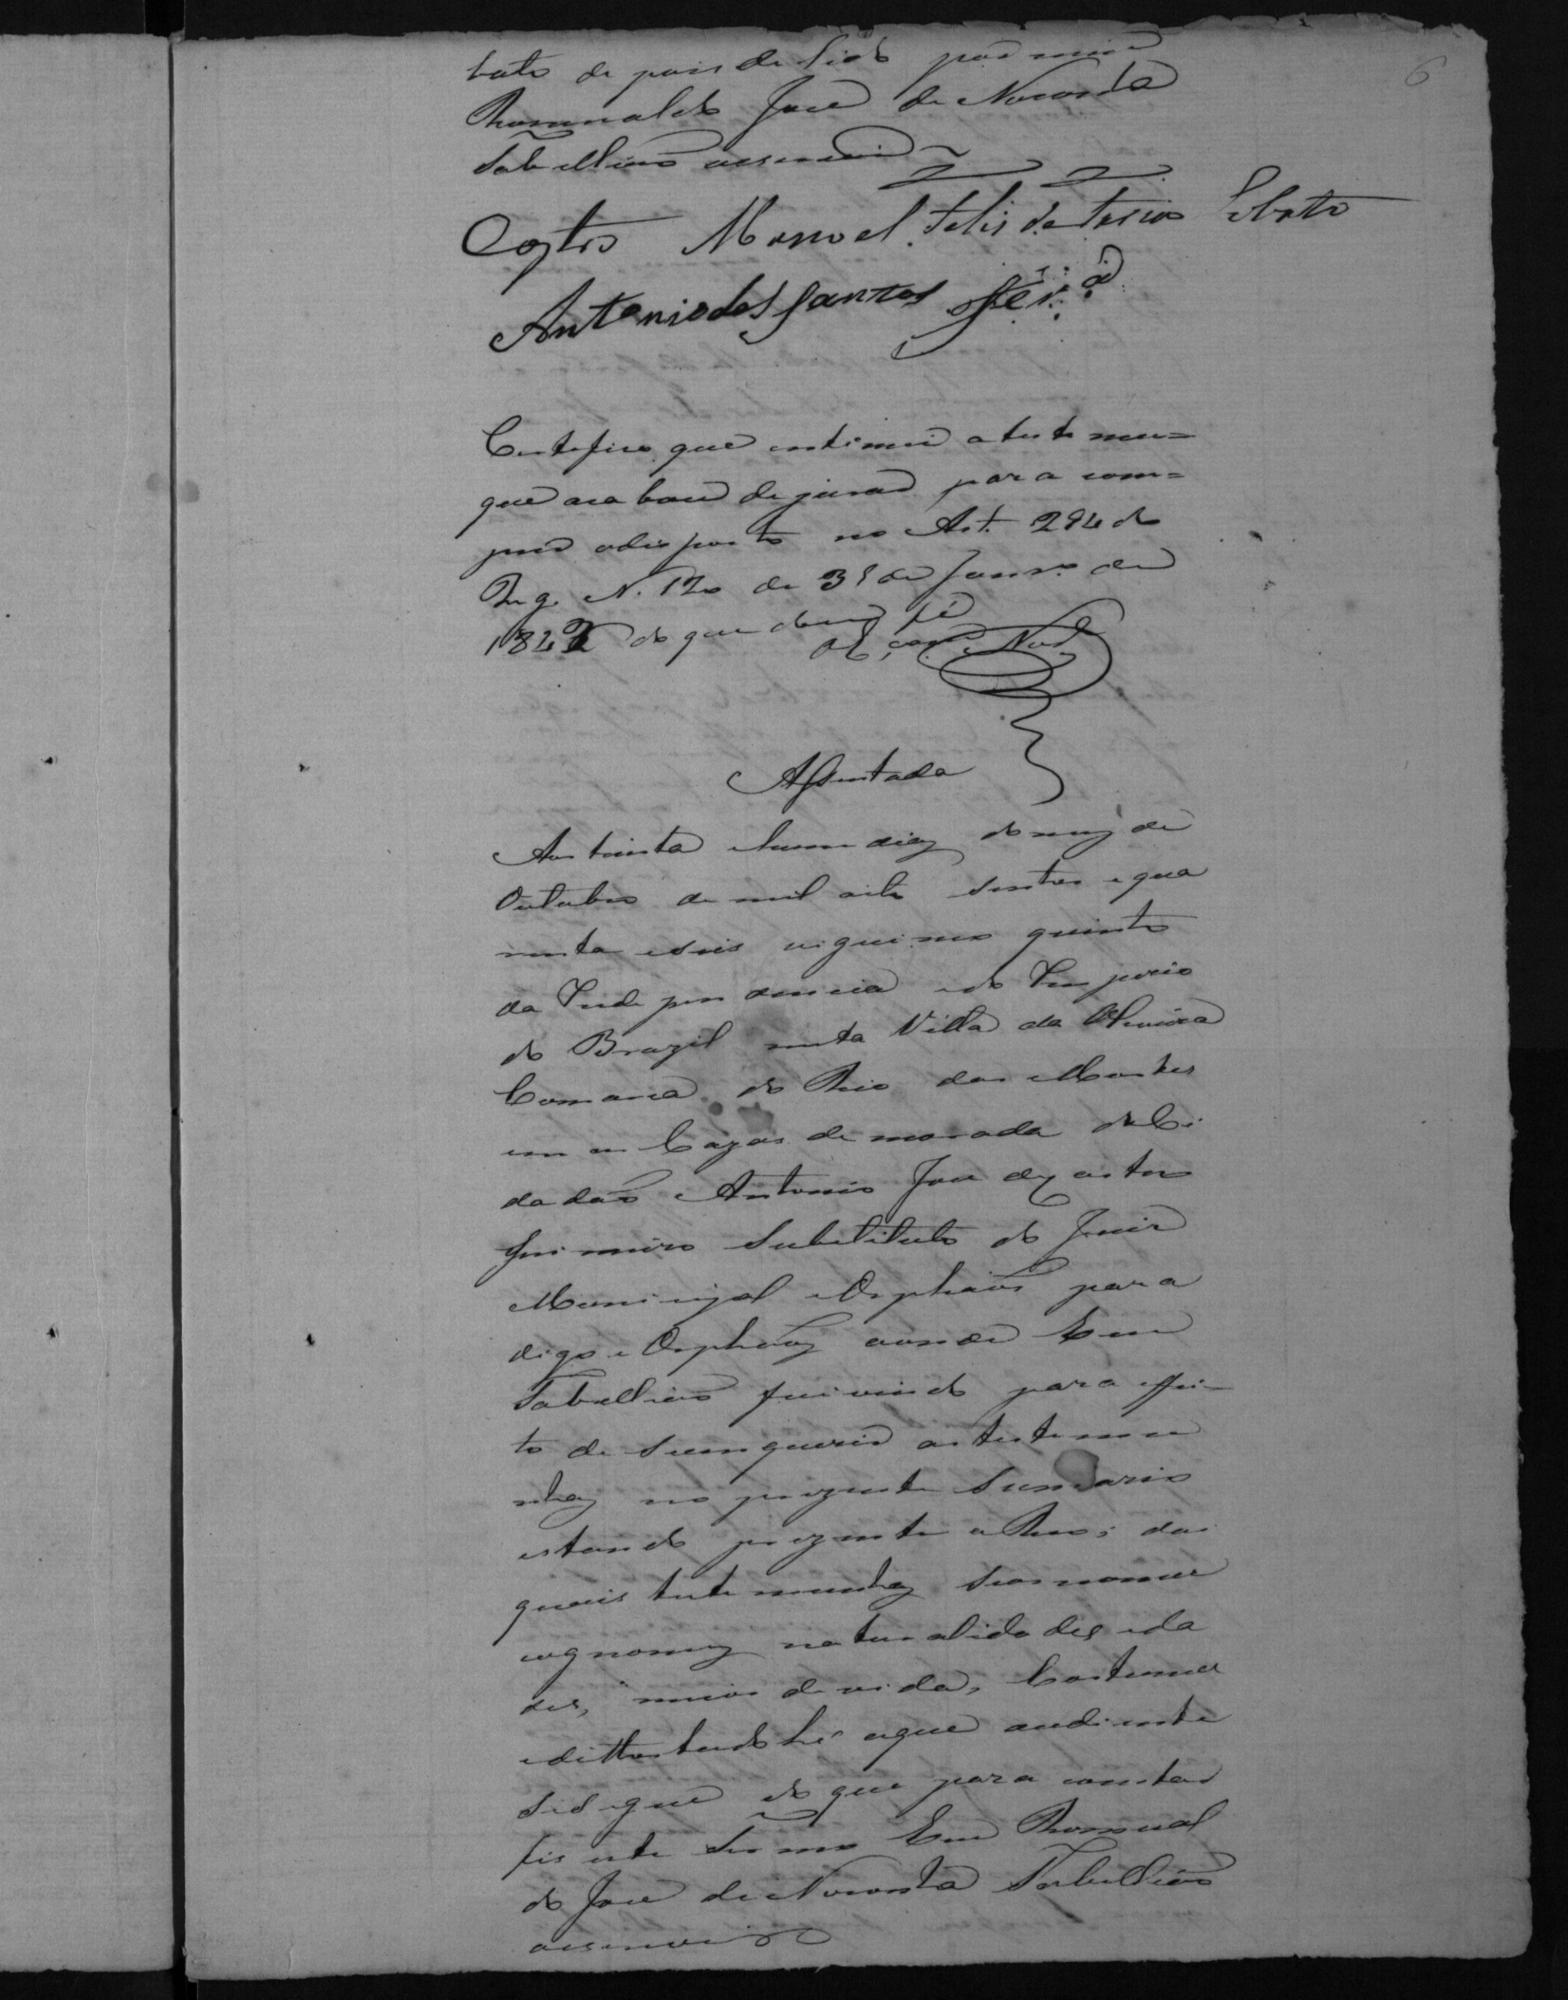 6
bato de pois de lido por mim
Romualdo Joze de Noronha
Tabelliaõ escrevi
Castro Manoel Felis de Lobato
Antonio dos Santos Ferr.ª
Certefico que intimei a teste mu=
que aca bou de jurar para com=
prir odisposto no Art. 294 do
Reg. N. 120 de 31 de Janr.o de
1842 do que dou fé
Nor.
Assentada
Aos trinta e hum dias do mez de
Outubro de mil oito sentos e qua
renta e seis vigeimo quinto
da Inde pen dencia e do Im perio
do Brazil nesta Villa da Oliveira
Comarca do Rio das Mortes
em as Cazas de morada do Ci
dadaõ Antonio Joze de Castro
primeiro Substituto do Juiz
Municipal e Orphaõs para
digo e Orphaos aonde Eu
Tabelliaõ fui vindo para effei-
to de serem queridas as testemu
nhas no prezente Sumario
estando prezente o Reo; das
quais teste munhas seos nomes
cognomes natur alida des e da
des, meios de vida, Costumes
e dittos he o que ao diente
se segue do que para constar
fis este termo Eu Romual
do Joze de Noronha Tabelliaõ
escrevi